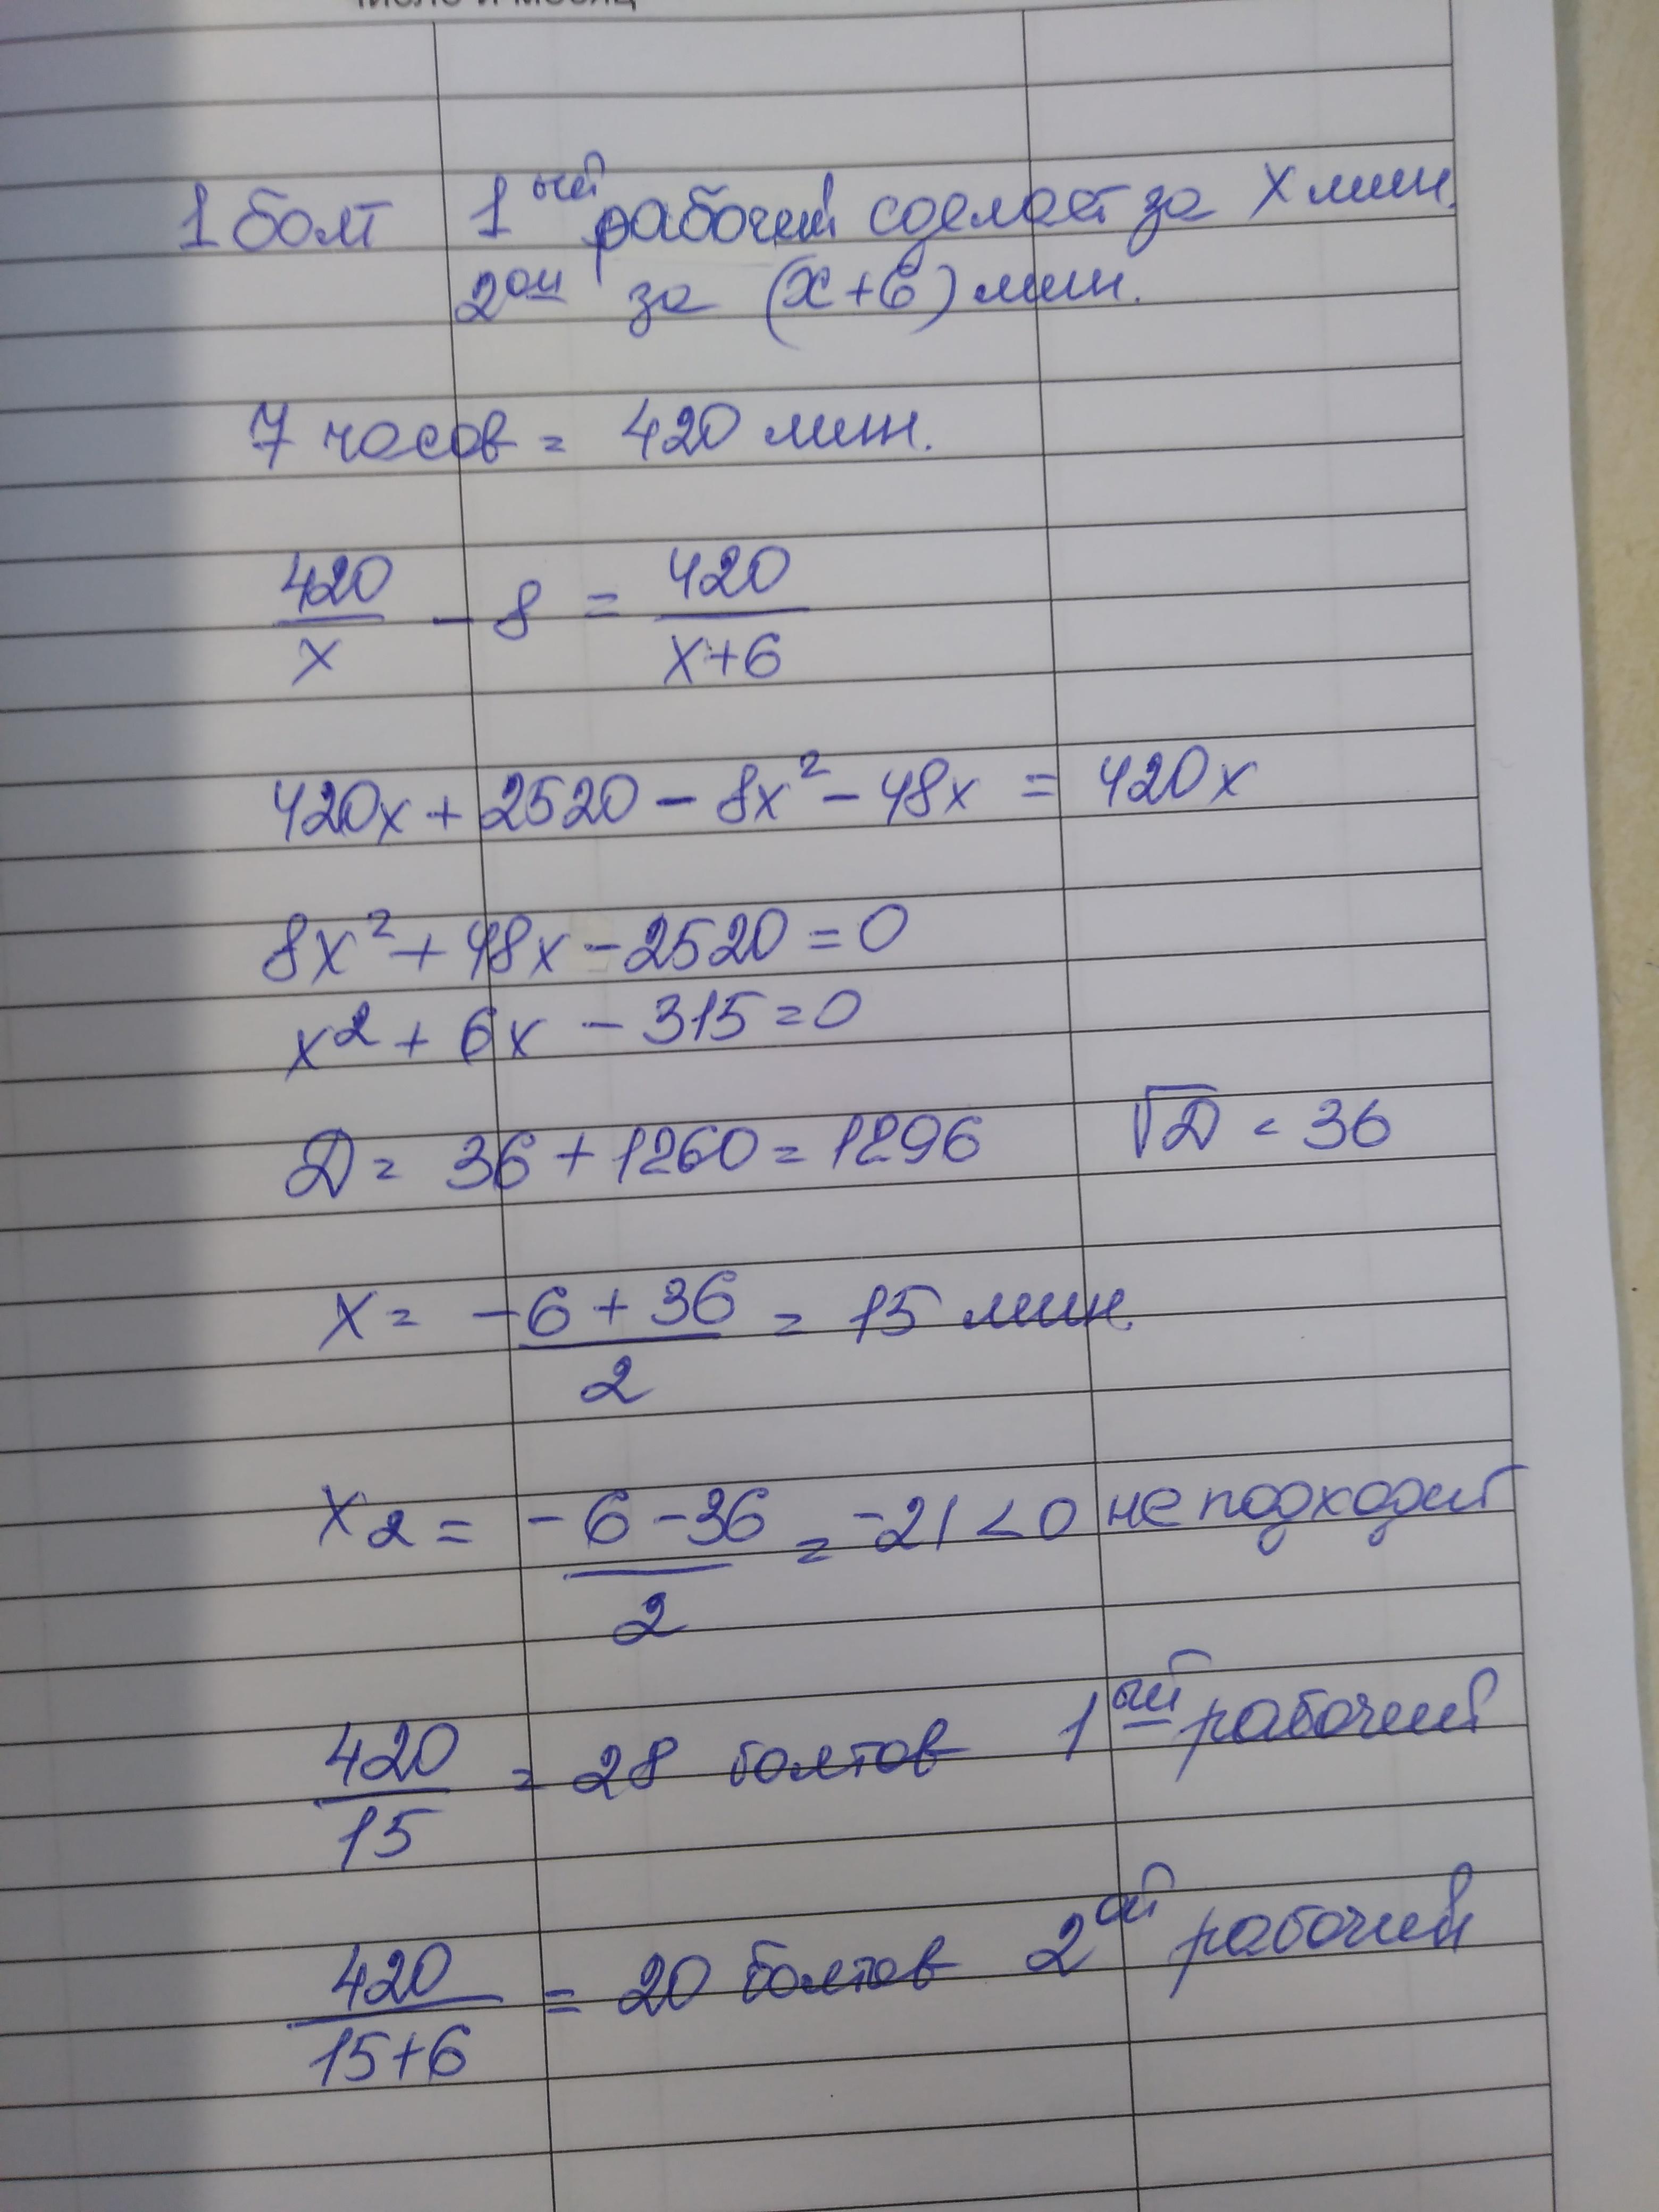 число и месяц
1 болт 1ый рабочий сделает за x мин.
2ой за (x+6) мин.
7 часов = 420 мин.
420/x - 8 = 420/(x+6)
420x + 2520 - 8x² - 48x = 420x
8x² + 48x - 2520 = 0
x² + 6x - 315 = 0
D = 36 + 1260 = 1296 √D = 36
x = (-6 + 36)/2 = 15 мин.
x2 = (-6 - 36)/2 = -21 < 0 не подходит
420/15 = 28 болтов 1ый рабочий
420/(15+6) = 20 болтов 2ой рабочий